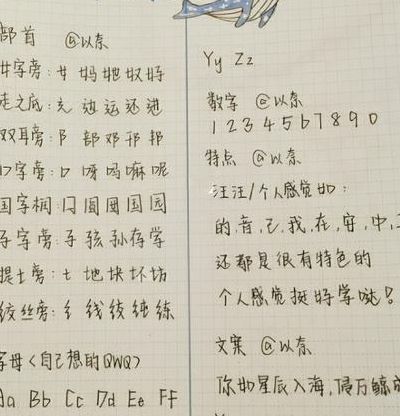 部首 @以奈
女字旁：女 妈 她 奴 好
走之底：辶 边 运 还 进
双耳旁：阝 部 邓 邢 邦
口字旁：口 呀 吗 嘛 呢
国字框：囗 圆 围 国 园
子字旁：子 孩 孙 存 学
提土旁：土 地 块 坏 坊
绞丝旁：纟 线 绞 纯 练
字母〈自己想的QWQ〉
Aa Bb Cc Dd Ee Ff
Yy Zz
数字 @以奈
1 2 3 4 5 6 7 8 9 0
特点 @以奈
汪汪/个人感觉如：
的,音,己,我,在,安,中,
还都是很有特色的
个人感觉挺好学哒！
文案 @以奈
你如星辰入海,万鲸